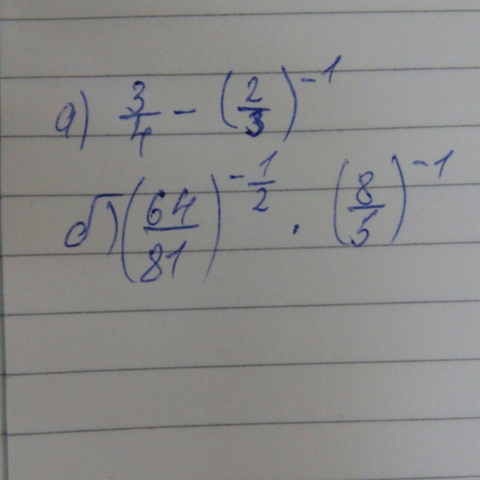 а) 3/4 − (2/3)^−1
б) (64/81)^−1/2 · (8/5)^−1